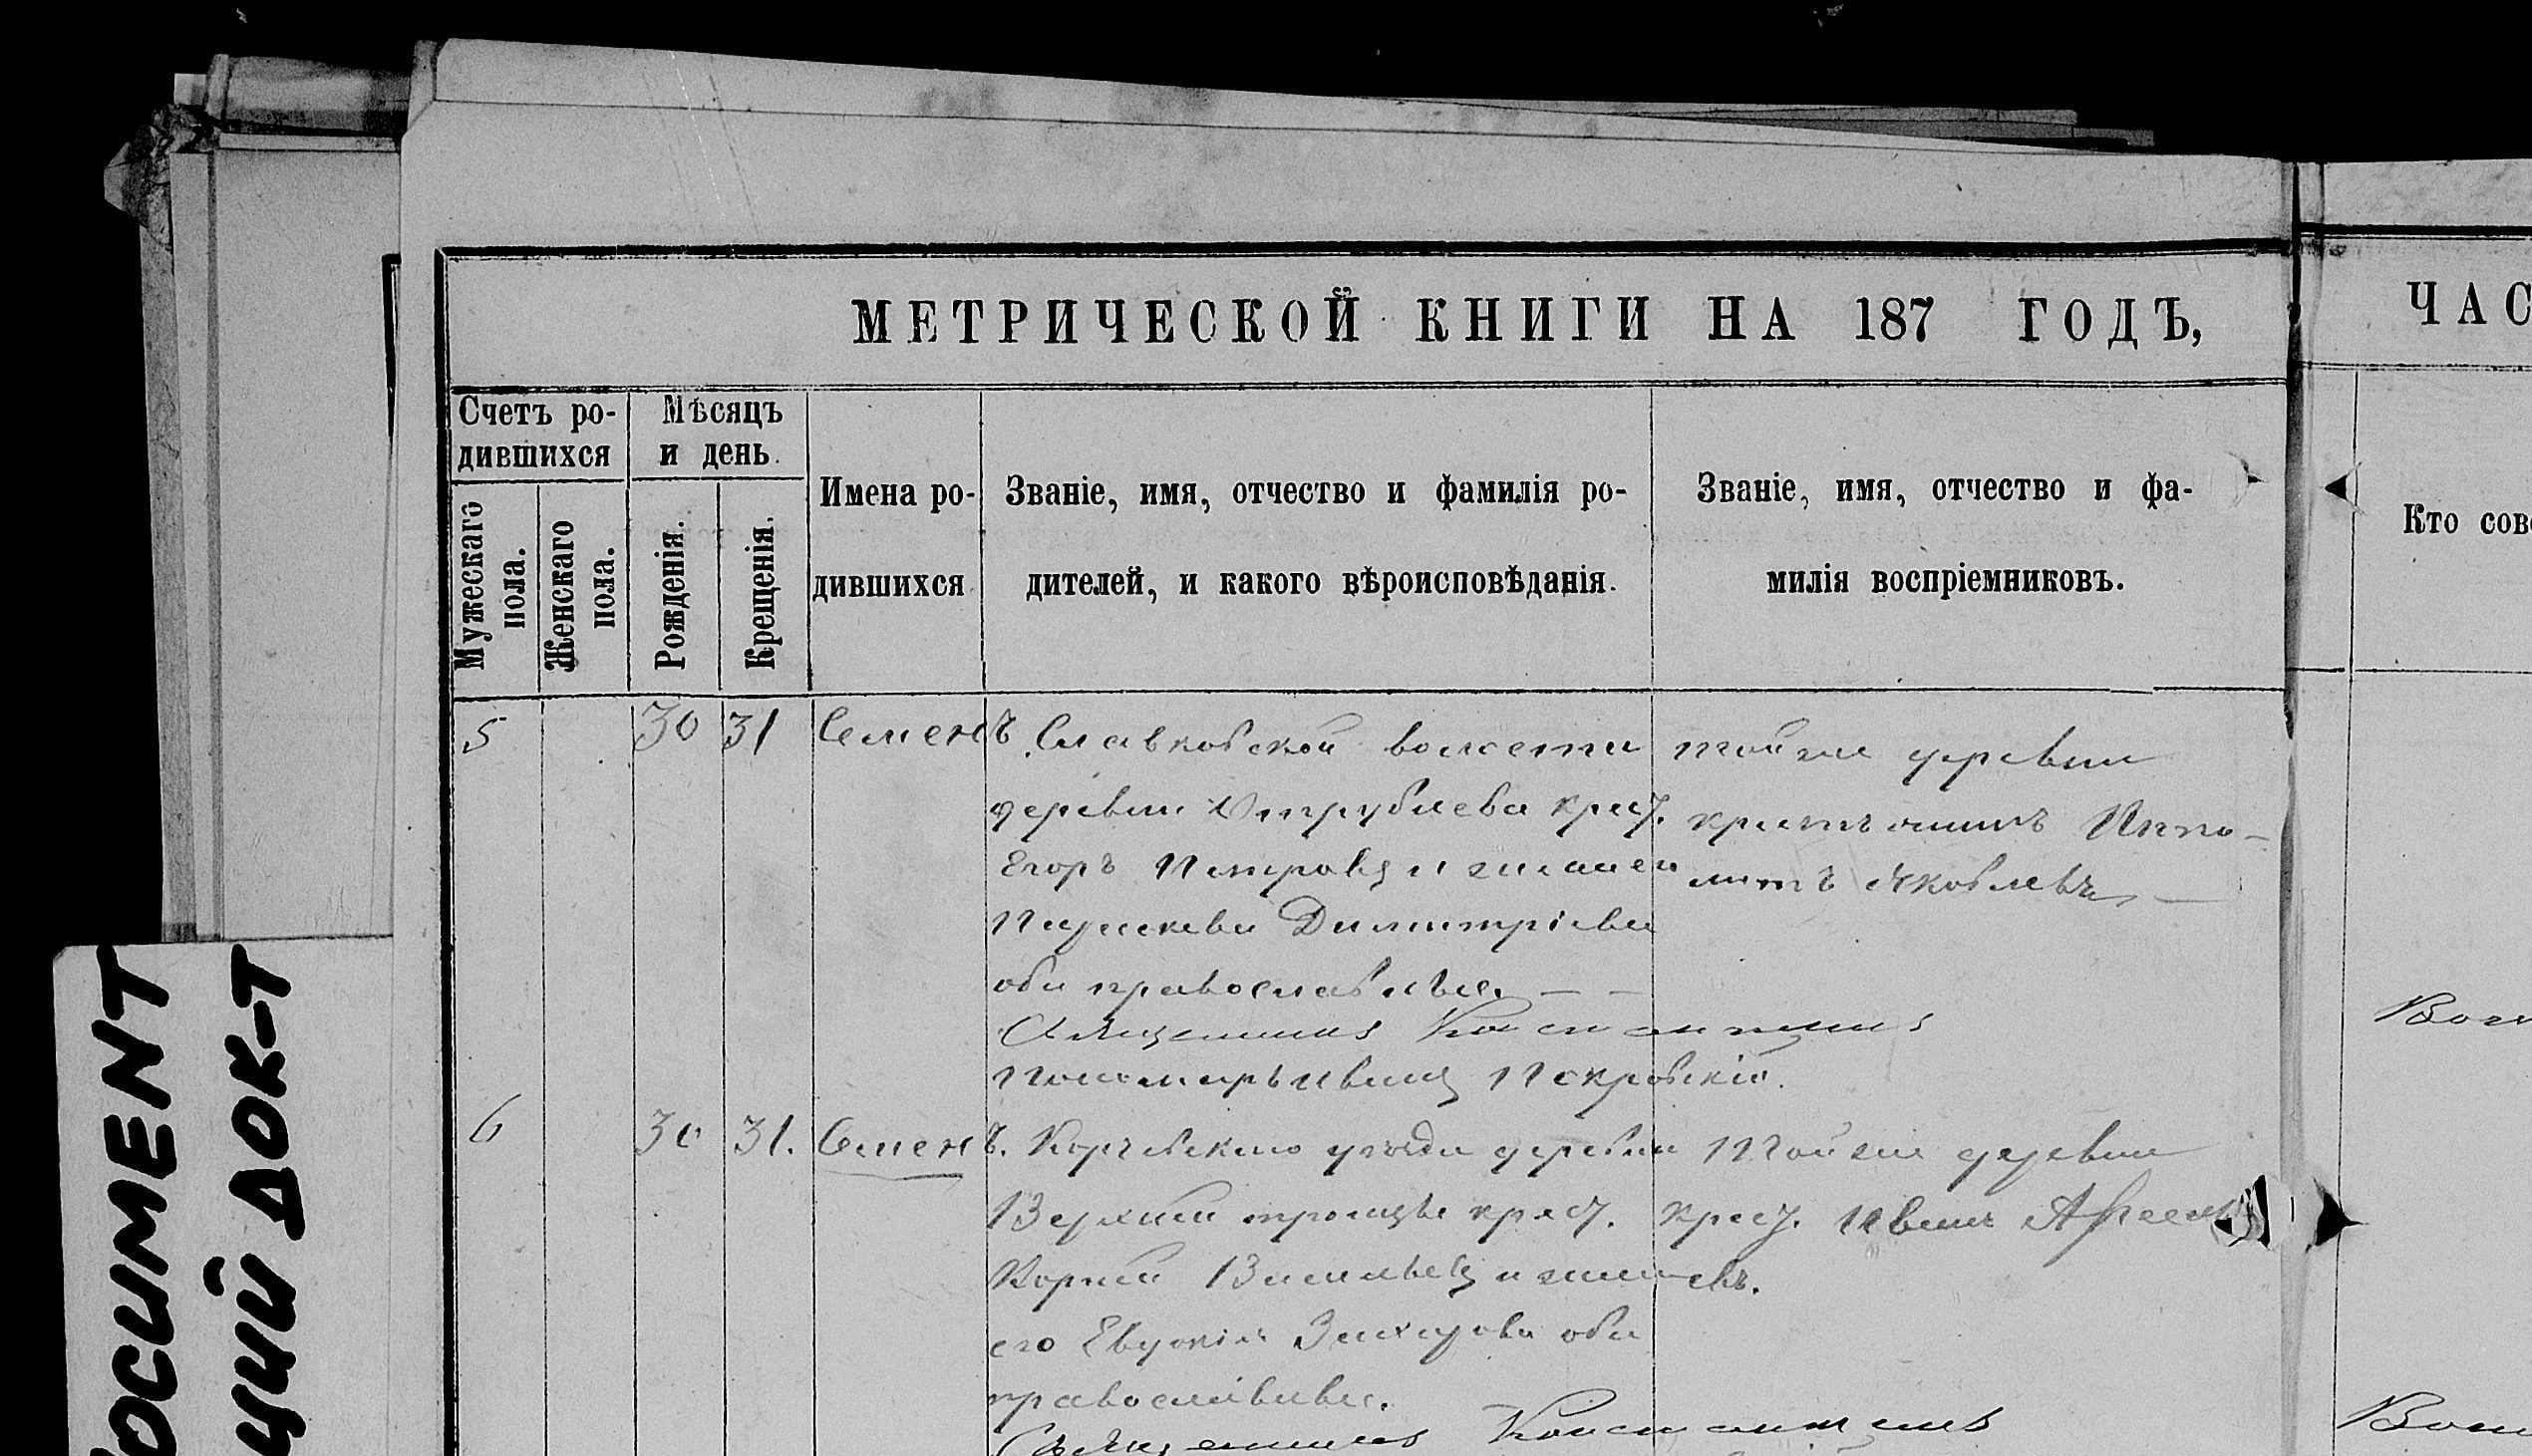 МЕТРИЧЕСКОЙ КНИГИ НА 187 ГОДЪ,
ЧАС
Счетъ ро-
дившихся
Мѣсяцъ
и день.
Мужескаго
пола.
Женскаго
пола.
Рожденія.
Крещенія.
Имена ро-
дившихся
Званіе, имя, отчество и фамилія ро-
дителей, и какого вѣроисповѣданія.
Званіе, имя, отчество и фа-
милія воспріемниковъ.
Кто сов
5 30 31 Семенъ
Славковской волости
деревни крест.
Егоръ Петровъ и жена его
Параскева Димитріева
оба православные.
Священникъ Константинъ
Покровскій.
той же деревни
крестьянинъ Иппо-
литъ Яковлевъ
6 30 31. Семенъ.
Корчевскаго уѣзда деревни
Верхней троицы крест.
Корней Васильевъ и жена
его Евдокія Захарова оба
православные.
Священникъ Константинъ
Той же деревни
крест. Иванъ
евъ.
DOCUMENT
ЩИЙ ДОК-Т